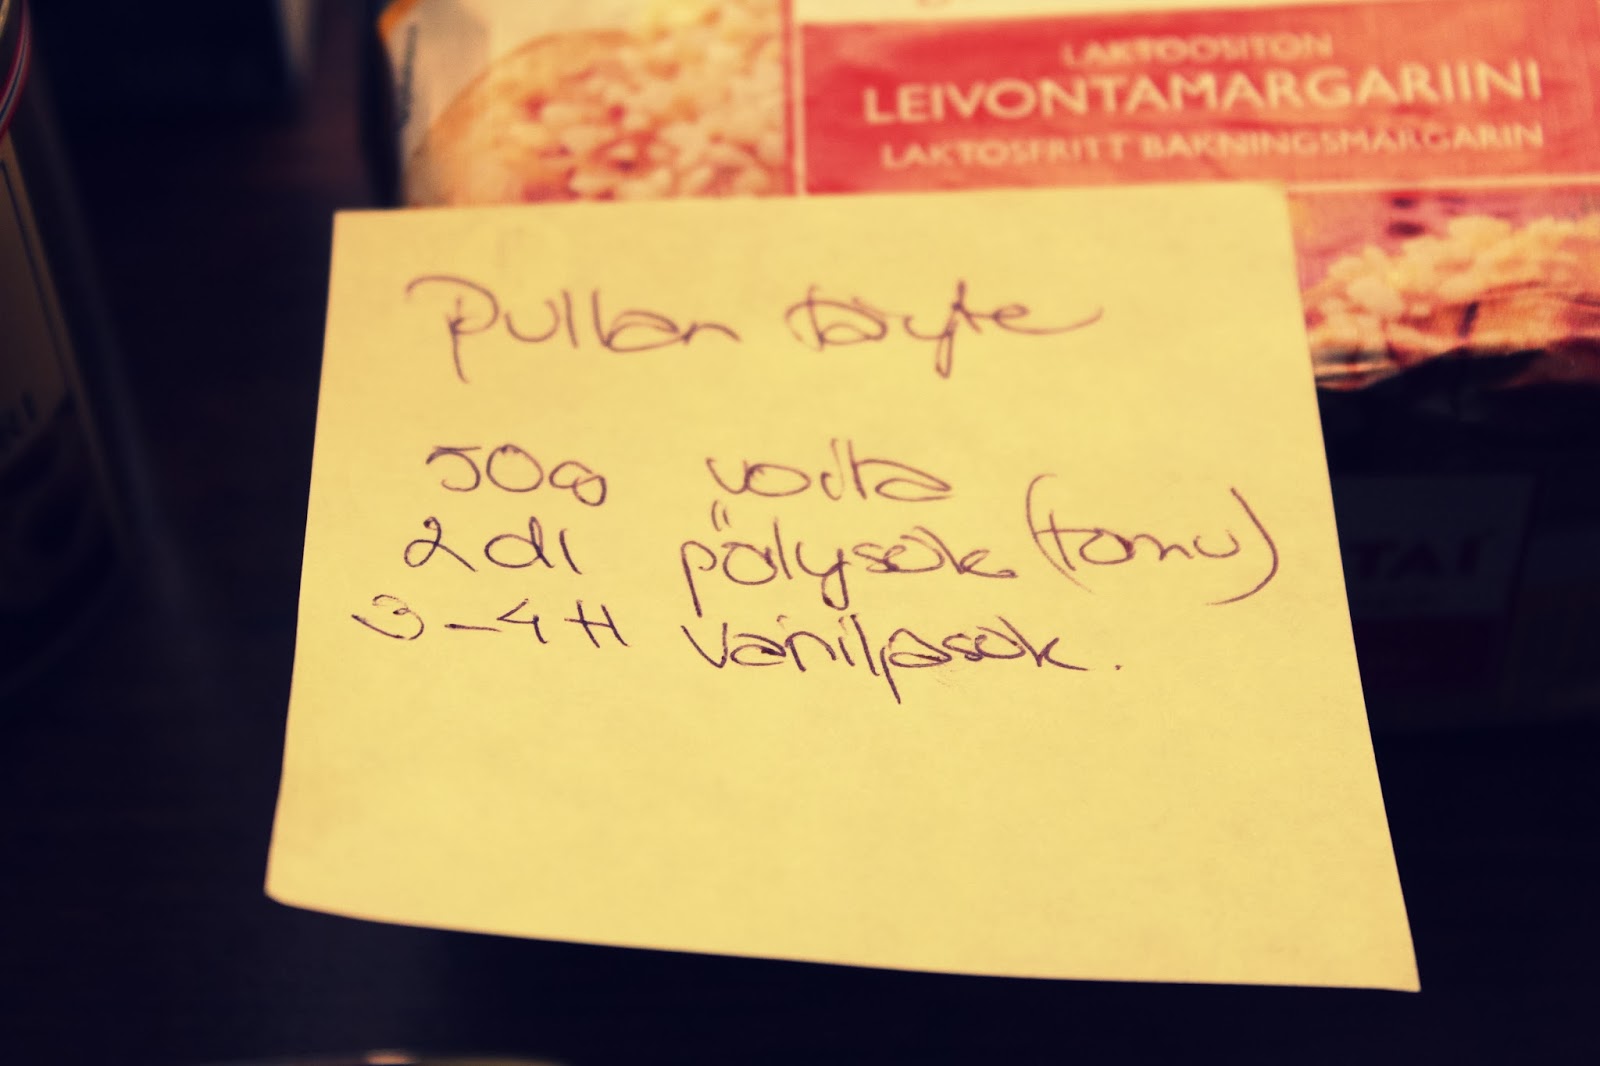 LAKTOOSITON
LEIVONTAMARGARIINI
LAKTOSFRITT BAKNINGSMARGARIN
Pullan täyte
50g voita
2dl pölysok (tomu)
3-4 tl vaniljasok.
TAI